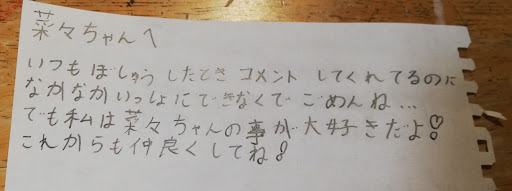 菜々ちゃんへ
いつもぼしゅうしたときコメントしてくれてるのに
なかなかいっしょにできなくてごめんね…
でも私は菜々ちゃんの事が大好きだよ!
これからも仲良くしてね!